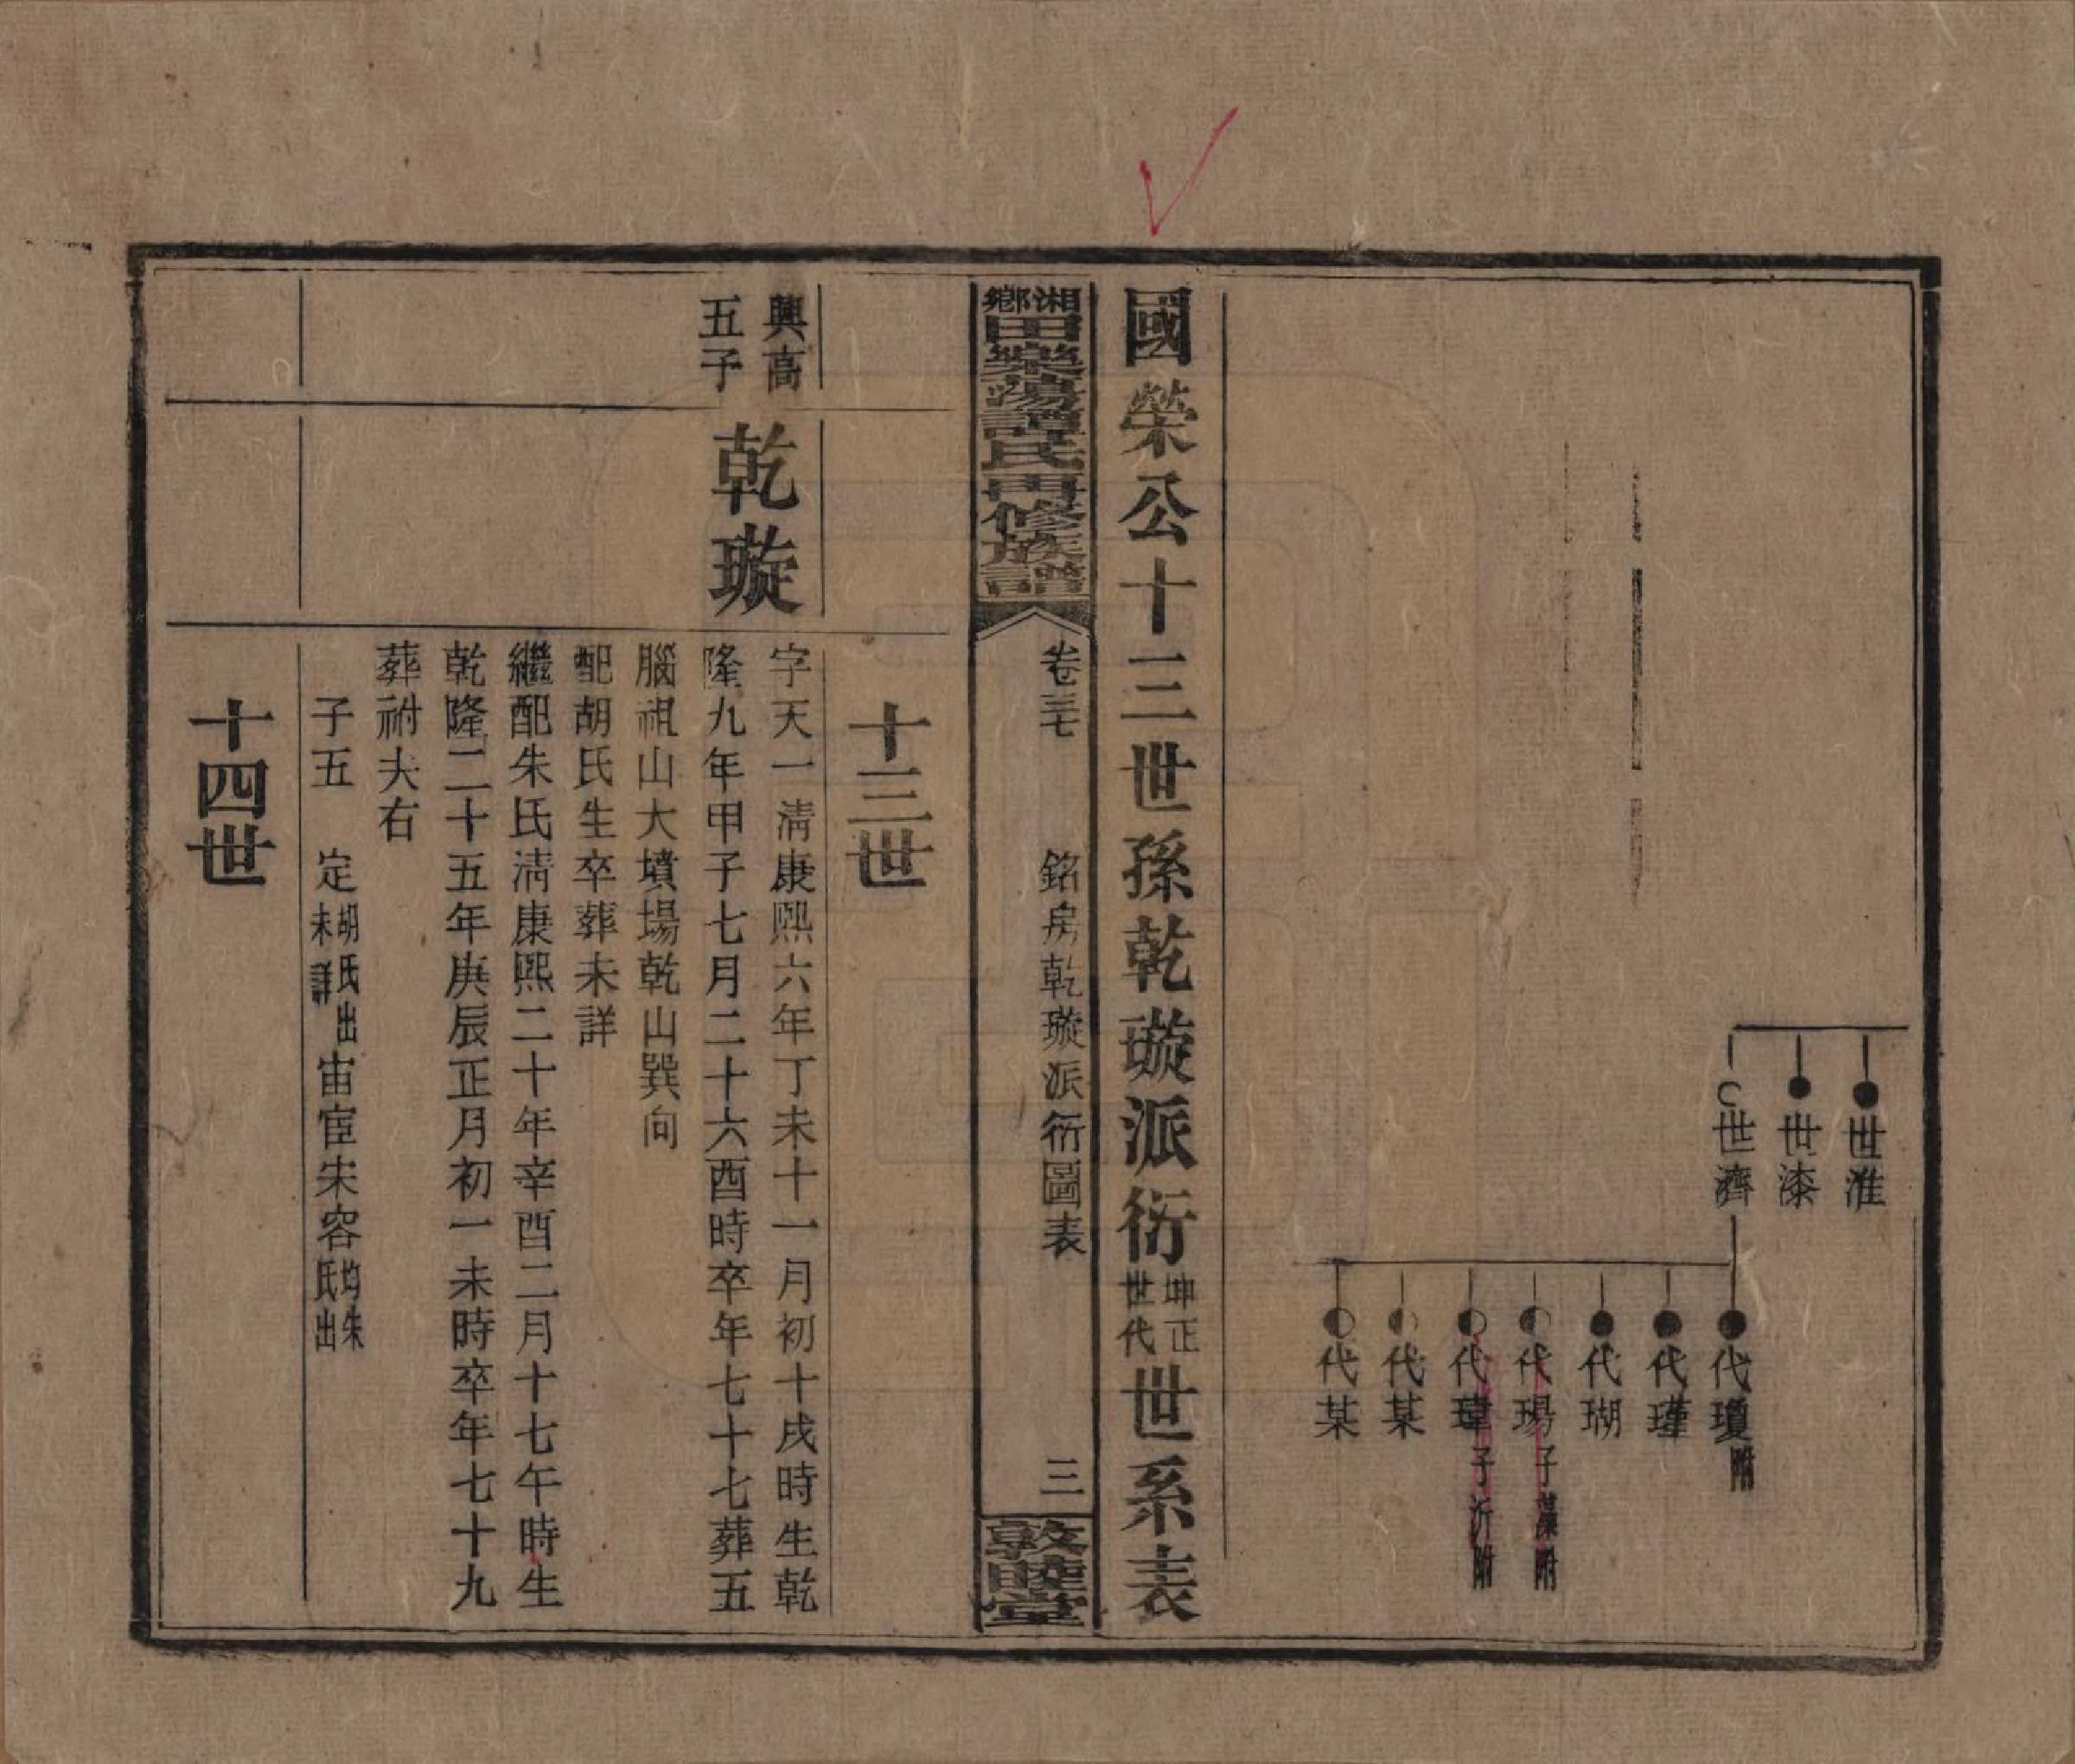 世淮
世漆
世濟
代瓊附
代瑾
代瑚
代瑒子藻附
代瑋子沂附
代某
代某
國榮公十三世孫乾璇派衍坤正世代世系表
湘鄉田樂蕩譚氏再修族譜
卷三七
銘房乾璇派衍圖表
三
敦睦堂
十三世
興高
五子
乾璇
字天一清康熙六年丁未十一月初十戌時生乾
隆九年甲子七月二十六酉時卒年七十七葬五
腦祖山大墳場乾山巽向
配胡氏生卒葬未詳
繼配朱氏清康熙二十年辛酉二月十七午時生
乾隆二十五年庚辰正月初一未時卒年七十九
葬祔夫右
子五 定胡氏出未詳宙宦宋容均朱氏出
十四世